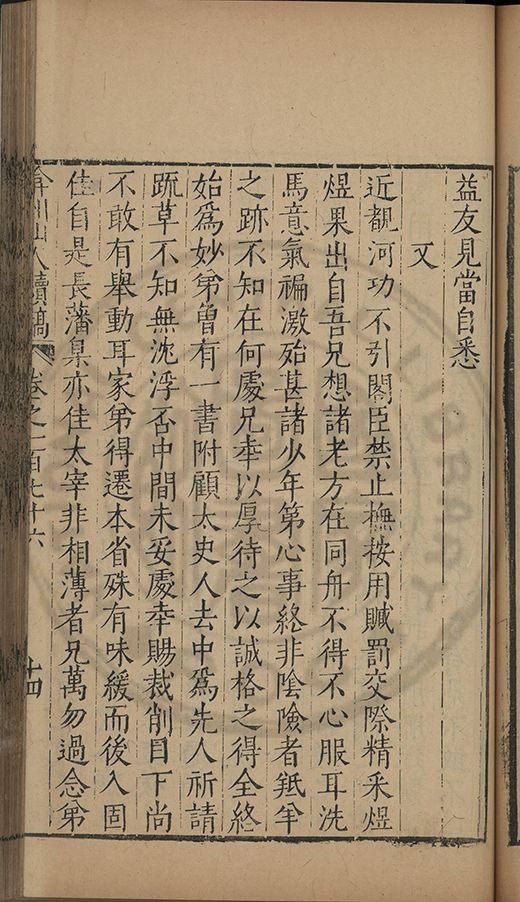 益友見當自悉
又
近覩河功不引閣臣禁止撫按用贓罰交際精采煜
煜果出自吾兄想諸老方在同舟不得不心服耳洗
馬意氣褊激殆甚諸少年第心事終非陰險者羝羊
之跡不知在何處兄幸以厚待之以誠格之得全終
始爲妙弟曾有一書附顧太史人去中爲先人祈請
疏草不知無沈浮否中間未妥處幸賜裁削目下尚
不敢有舉動耳家弟得遷本省殊有味緩而後入固
佳自是長藩臬亦佳太宰非相薄者兄萬勿過念弟
弇州山人續稿 卷之一百七十六 十四